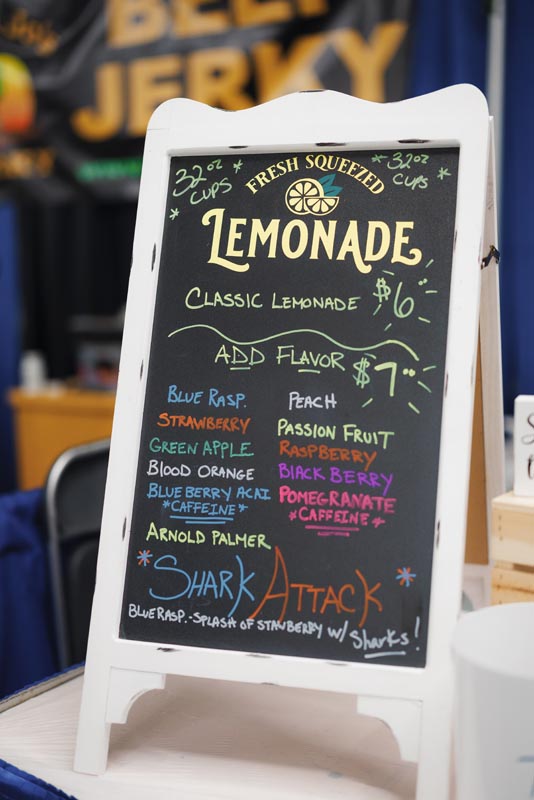 BEEF
JERKY
32oz CUPS
FRESH SQUEEZED
32oz CUPS
LEMONADE
CLASSIC LEMONADE $6
ADD FLAVOR $7
BLUE RASP.
PEACH
STRAWBERRY
PASSION FRUIT
GREEN APPLE
RASPBERRY
BLOOD ORANGE
BLACK BERRY
BLUEBERRY ACAI
POMEGRANATE
*CAFFEINE*
*CAFFEINE*
ARNOLD PALMER
SHARK ATTACK
BLUE RASP.-SPLASH OF STAWBERRY W/ Sharks!